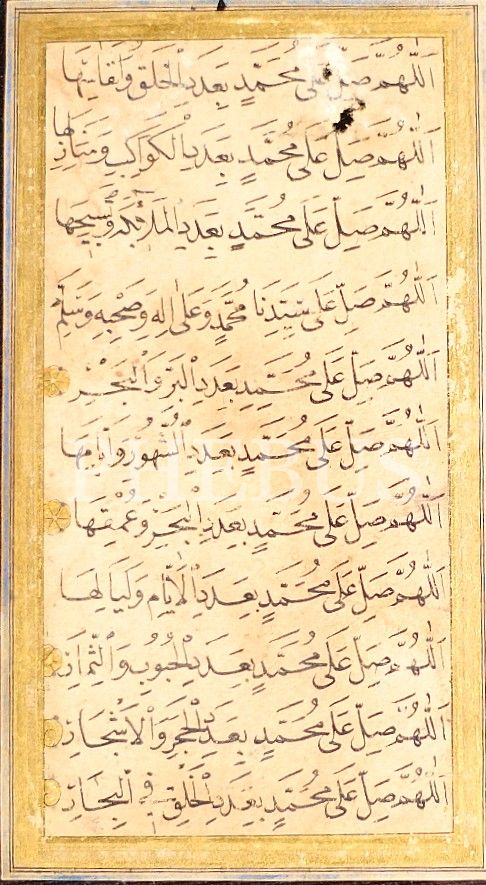 اَللّٰهُمَّ صَلِّ عَلٰى مُحَمَّدٍ بِعَدَدِ الْخَلْقِ وَبَقَائِهَا
اَللّٰهُمَّ صَلِّ عَلٰى مُحَمَّدٍ بِعَدَدِ الْكَوَاكِبِ وَمَنَازِلِهَا
اَللّٰهُمَّ صَلِّ عَلٰى مُحَمَّدٍ بِعَدَدِ الْمَلٰٓئِكَةِ وَتَسْبِيحِهَا
اَللّٰهُمَّ صَلِّ عَلٰى سَيِّدِنَا مُحَمَّدٍ وَعَلٰى اٰلِهِ وَصَحْبِهِ وَسَلِّمْ
اَللّٰهُمَّ صَلِّ عَلٰى مُحَمَّدٍ بِعَدَدِ الْبَرِّ وَالْبَحْرِ
اَللّٰهُمَّ صَلِّ عَلٰى مُحَمَّدٍ بِعَدَدِ الشُّهُورِ وَاَيَّامِهَا
اَللّٰهُمَّ صَلِّ عَلٰى مُحَمَّدٍ بِعَدَدِ الْبَحْرِ وَعُمْقِهَا
اَللّٰهُمَّ صَلِّ عَلٰى مُحَمَّدٍ بِعَدَدِ الْاَيَّامِ وَلَيَالِهَا
اَللّٰهُمَّ صَلِّ عَلٰى مُحَمَّدٍ بِعَدَدِ الْحُبُوبِ وَالثِّمَارِ
اَللّٰهُمَّ صَلِّ عَلٰى مُحَمَّدٍ بِعَدَدِ الْحَجَرِ وَالْاَشْجَارِ
اَللّٰهُمَّ صَلِّ عَلٰى مُحَمَّدٍ بِعَدَدِ الْخَلْقِ فِي الْبِحَارِ
PHEBUS